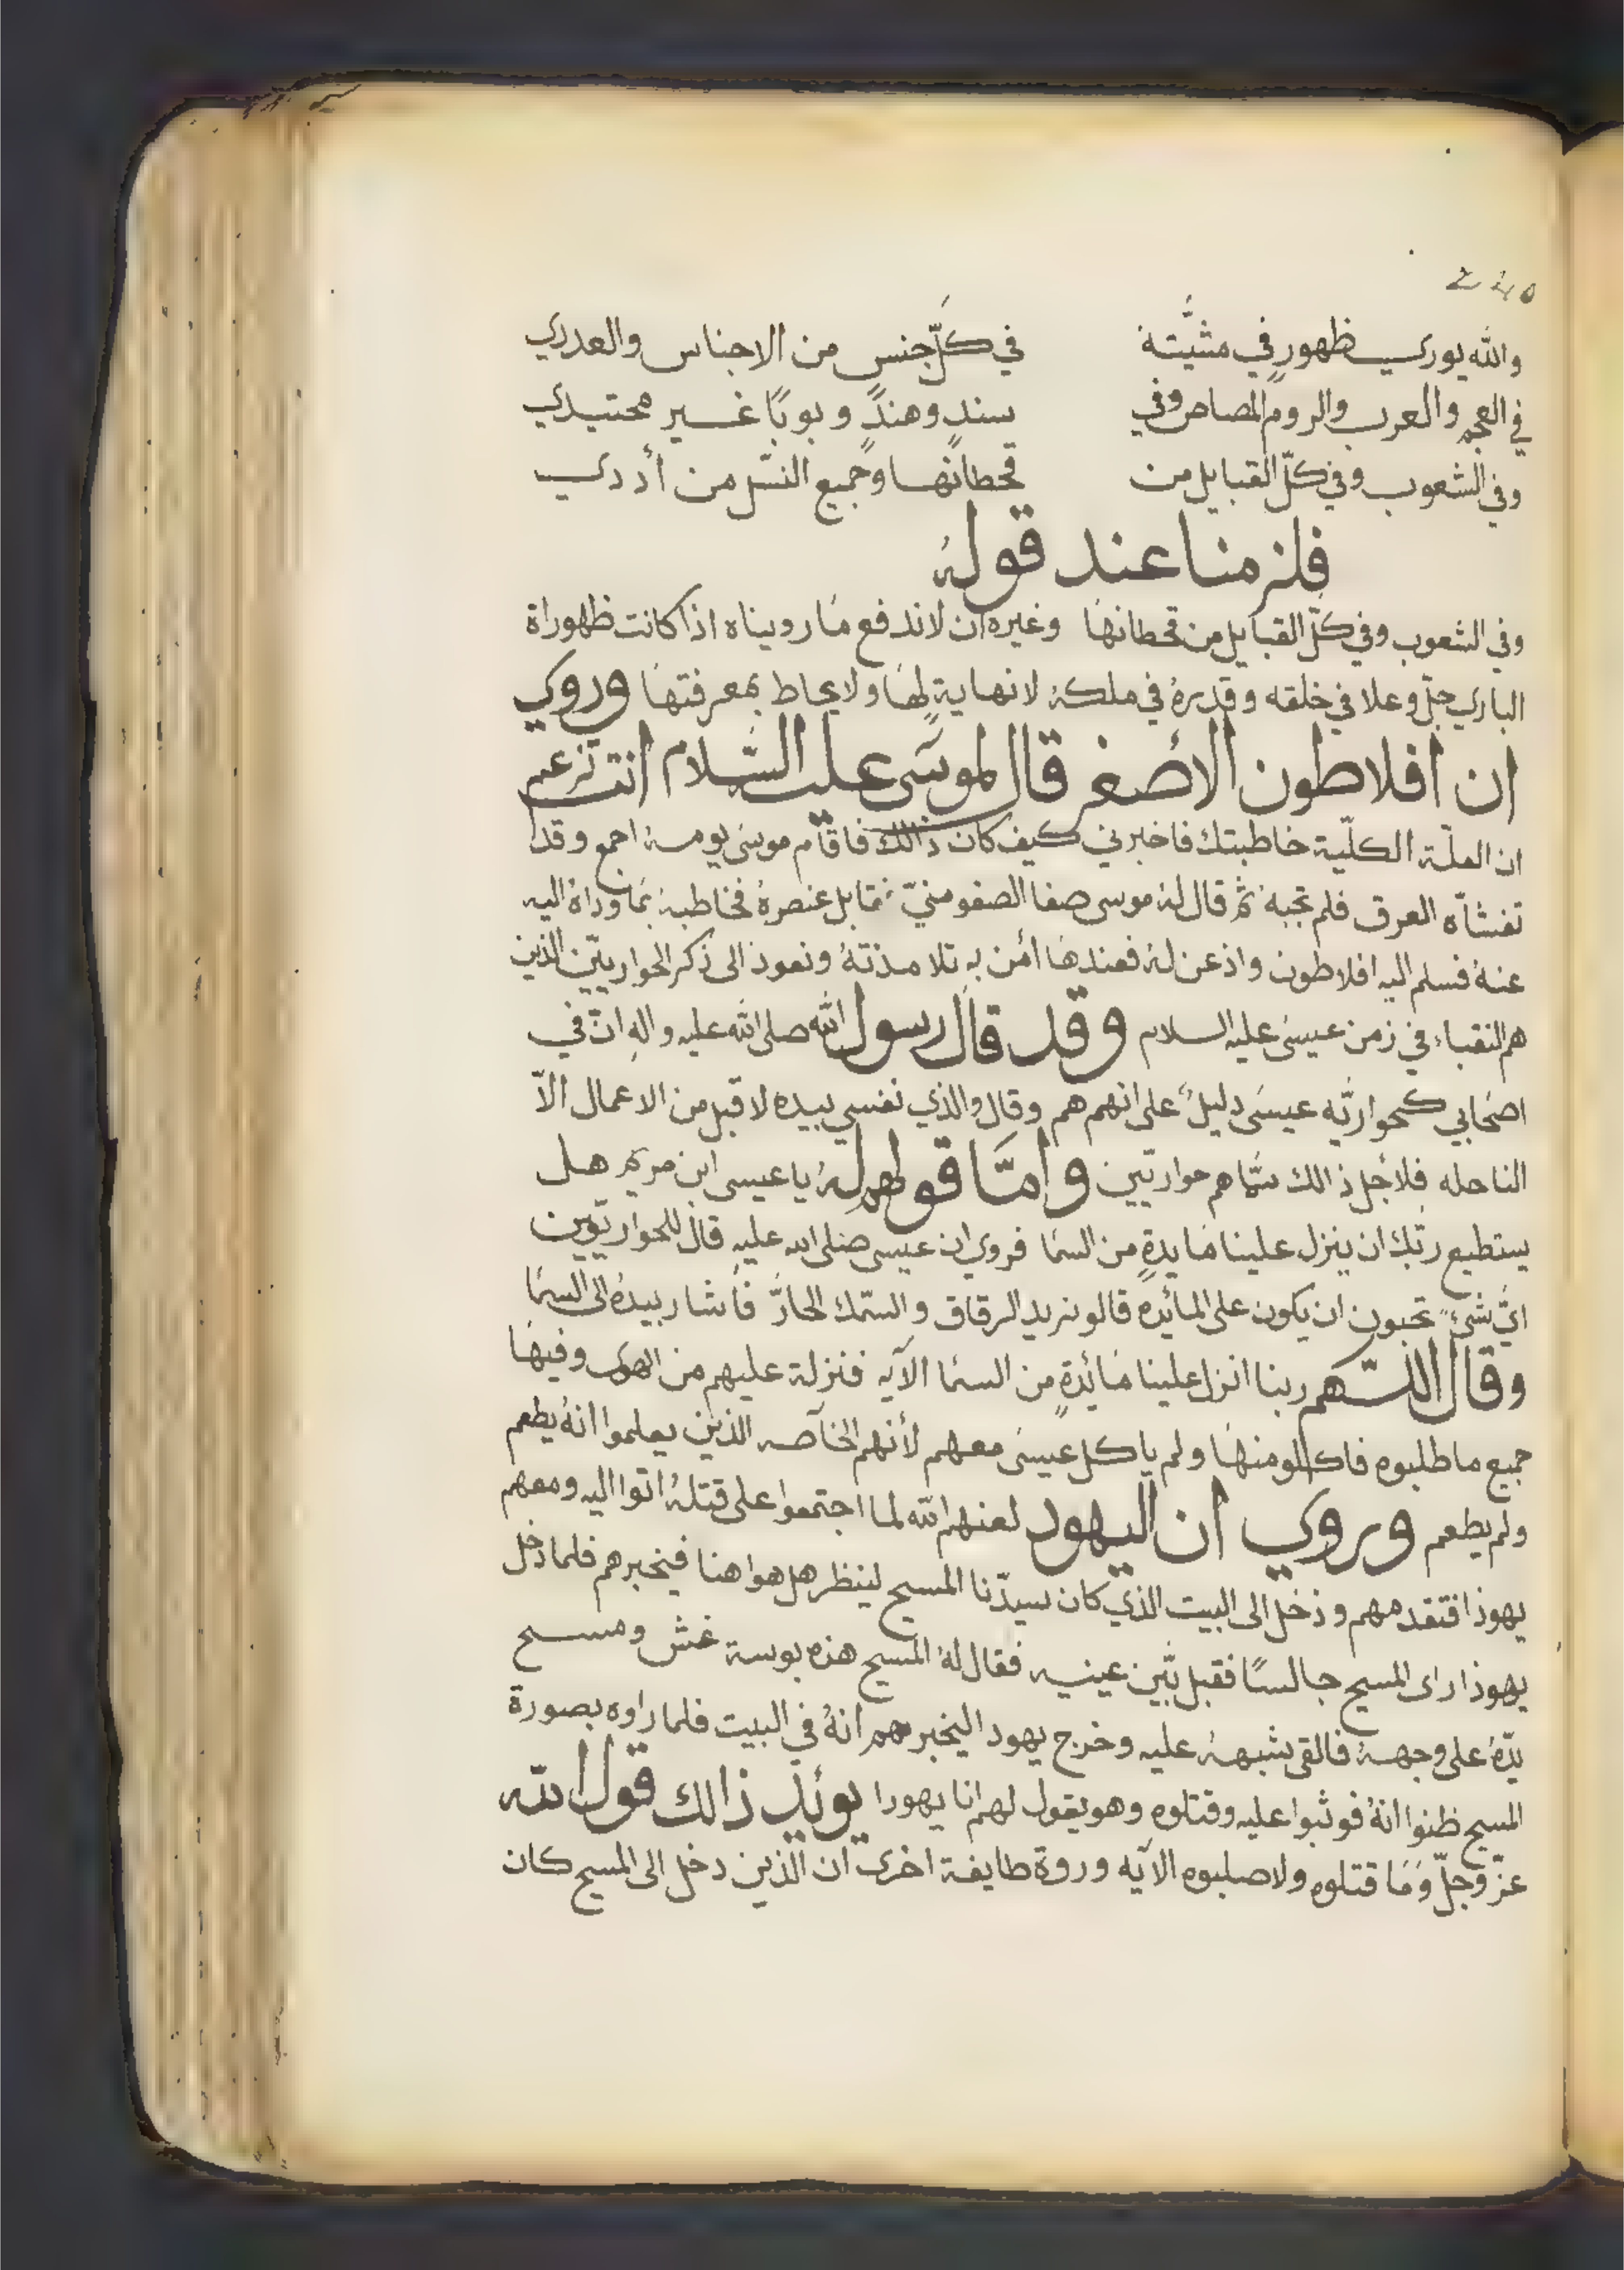 240
والله يوري ظهور في مشيّته في كلّ جنس من الاجناس والعددي
في العجم والعرب والروم المصاص وفي سند وهند وبوبا غير محتيدي
وفي الشعوب وفي كلّ القبايل من قحطانها وجميع النسل من أددي
فلزمنا عند قوله
وفي الشعوب وفي كلّ القبايل من قحطانها وغيره ان لاندفع ما رويناه اذا كانت ظهوراة
الباري جلّ وعلا في خلقه وقدرة في ملكه لانهاية لها ولا يحاط بمعرفتها وروي
ان افلاطون الأصغر قال لموسى عليه السلام انت تزعم
ان العلّة الكلّية خاطبتك فاخبرني كيف كان ذالك فاقام موسى يومه اجمع وقد
تغشاه العرق فلم يجبه ثم قال له موسى صفا الصفو منيّ فقابل عنصره فخاطبه بما وداه اليه
عنه فسلم اليه افلاطون واذعن له فعندها أمن به تلامذته ونعود الى ذكر الحواريّين الذين
هم النقباء في زمن عيسى عليه السلام وقد قال رسول الله صلى الله عليه واله انّ في
اصحابي كحواريّه عيسى دليلٌ على انهم هم وقال والذي نفسي بيده لا قبل من الاعمال الاّ
الناحله فلأجل ذالك سمّاهم حواريّين وامّا قولهم له يا عيسى ابن مريم هل
يستطيع ربّك ان ينزل علينا مايدةٍ من السما فروي ان عيسى صلى الله عليه قال للحواريّوين
ايّ شيءٍ تحبون ان يكون على المائده قالو نريد الرقاق والسّمك الحارّ فأشار بيده الى السما
وقال اللّهم ربنا انزل علينا مائدةٍ من السما الآيه فنزلة عليهم من الهوى وفيها
جميع ما طلبوه فاكلو منها ولم ياكل عيسى معهم لأنهم الخآصه الذين يعلموا انه يطعم
ولم يطعم وروي ان اليهود لعنهم الله لما اجتمعوا على قتله اتوا اليه ومعهم
يهوذا فتقدمهم ودخل الى البيت الذي كان سيدّنا المسيح لينظر هل هوا هنا فيخبرهم فلما دخل
يهوذا راى المسيح جالسًا فقبل بيّن عينيه فقال له المسيح هذه بوسة غش ومسح
يدّه على وجهه فالقى شبهه عليه وخرج يهودا ليخبرهم انه في البيت فلما راوه بصورة
المسيح ظنوا انه فوثبوا عليه وقتلوه وهو يقول لهم انا يهودا يوئيد ذالك قول الله
عزّ وجلّ وما قتلوه ولا صلبوه الآيه وروة طايفة اخرى ان الذين دخل الى المسيح كان